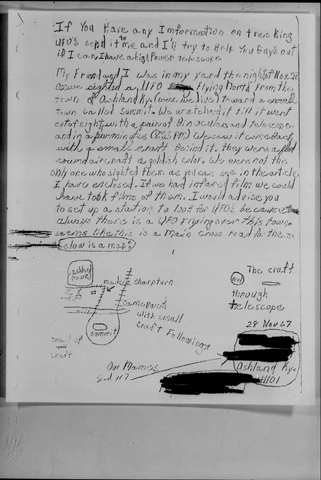 If You Have any Imformation on tracking
UFO's send it to me and I'll try to Help You Guys out
if I can. I have a high Power telescope
My Friend and I was in my yard the night of Nov. 26
and we sighted a UFO Flying North From the
town of Ashland Ky. (where we live) toward a small
town called Summit. We watched it till it went
out of sight with a pair of Binoculars and telescope
and in a few minutes (8:25 PM) We saw it come Back
with a small craft Behind it. they were a
sound aircraft a goldish color. We were not the
only one who sighted them as you can see in the article
I have enclosed. If we had infared film we could
have took films of them. I would advise you
to set up a station to look for UFO's because
always there is a UFO Flying over this town
seems like this is a Main cross road for them
Below is a map
The craft
through
telescope
made a sharp turn
same path
with small
craft Following it
Summit
trail of
craft
28 Nov 67
Our Names
Ashland Ky.
41101